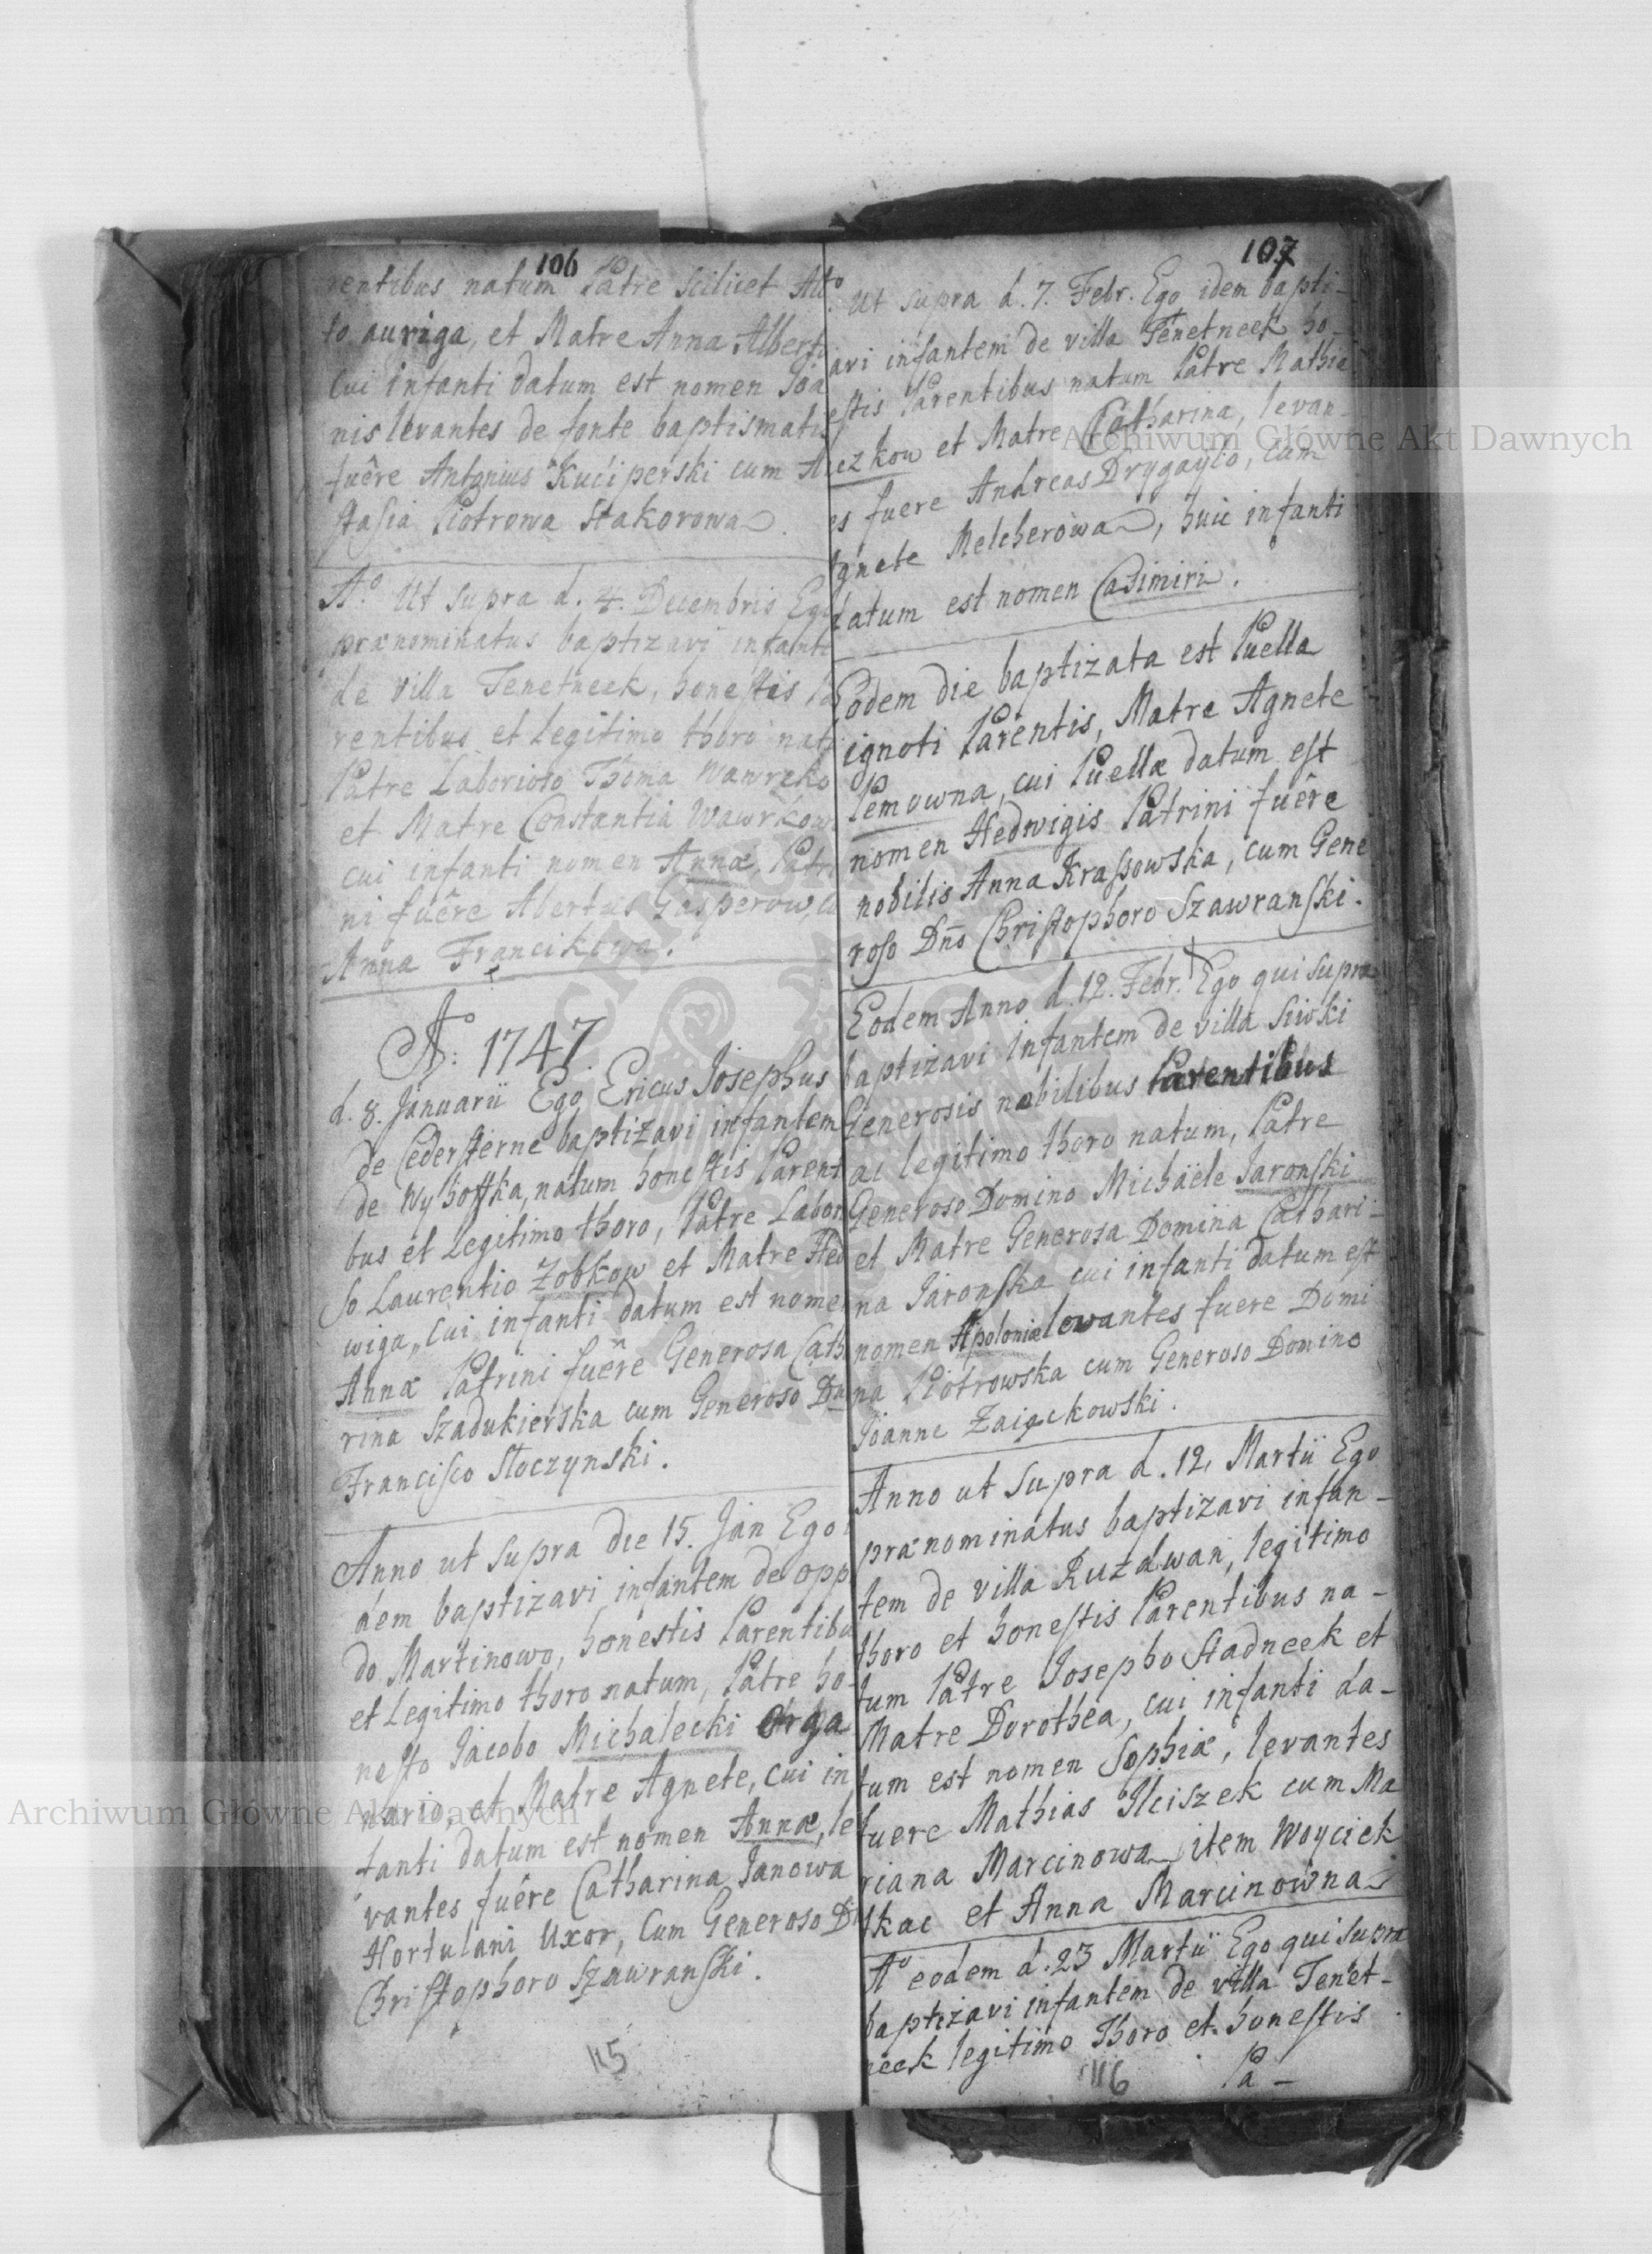 106
rentibus natum Patre scilicet Alb
to auriga, et Matre Anna Albert
Cui infanti datum est nomen Joa
nis levantes de fonte baptismatis
fuêre Antonius Kuciperski cum A
stasia Piotrowa Stakorowa.
Aº. Ut supra d. 4. Decembris Ego
prænominatus baptizavi infante
de villa Tenetneek, honestis Pa
rentibus et Legitimo thoro nat
Patre Laborioso Thoma Wawreko
et Matre Constantia Wawrkow
cui infanti nomen Annæ, Patri
ni fuêre Albertus Gasperow, cu
Anna Francikowa.
Aº: 1747.
d. 8. Januarii Ego Ericus Josephus
de Cedersterne baptizavi infantem
de Wyhoffka, natum honestis Parent
bus et Legitimo thoro, Patre Labor
so Laurentio Zobkow et Matre Hed
wiga, cui infanti datum est nome
Annæ Patrini fuêre Generosa Cath
rina Szadukierska cum Generoso Dn
Francisco Stoczynski.
Anno ut supra die 15. Jan Ego i
dem baptizavi infantem de opp
do Martinowo, honestis Parentibu
et Legitimo thoro natum, Patre ho-
nesto Jacobo Michalecki Orga
nario, et Matre Agnete, cui in
fanti datum est nomen Annæ, le
vantes fuêre Catharina Janowa
Hortulani Uxor, Cum Generoso Dn
Christophoro Szawranski.
115
107
º Ut supra d. 7. Febr. Ego idem bapti-
avi infantem de villa Tenetneek ho-
estis Parentibus natum Patre Mathia
czkow et Matre Catharina, levan-
es fuere Andreas Drygaylo, cum
Agnete Melcherowa, huic infanti
datum est nomen Casimiri.
Eodem die baptizata est Puella
ignoti Parentis, Matre Agnete
Pemowna, cui Puellæ datum est
nomen Hedwigis Patrini fuêre
nobilis Anna Krassowska, cum Gene
roso Dnō Christophoro Szawranski.
Eodem Anno d. 12. Febr. Ego qui supra
baptizavi infantem de villa Siwki
Generosis nobilibus Parentibus
ac legitimo thoro natum, Patre
Generoso Domino Michäele Jaronski
et Matre Generosa Domina Cathari-
na Jaronska cui infanti datum est
nomen Apoloniæ levantes fuere Domi
na Piotrowska cum Generoso Domino
Joanne Zaigckowski.
Anno ut supra d. 12. Martii Ego
prænominatus baptizavi infan-
tem de villa Ruzdwan, legitimo
thoro et honestis Parentibus na-
tum Patre Josepho Stadneek et
Matre Dorothea, cui infanti da-
tum est nomen Sophiæ, levantes
fuere Mathias Ilciszek cum Ma
riana Marcinowa item Woyciek
tkac et Anna Marcinowna
Aº eodem d. 23 Martii Ego qui supra
baptizavi infantem de villa Tenet-
neek legitimo Thoro et honestis
Pa-
116
Archiwum Główne Akt Dawnych
Archiwum Główne Akt Dawnych